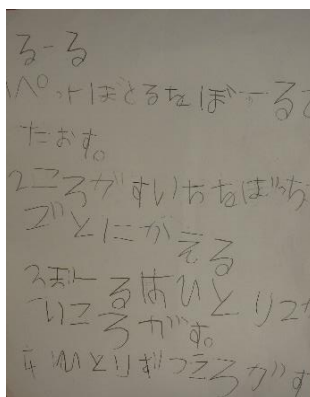 るーる
1ぺっとぼとるをぼーるで
たおす。
2ころがすいちをばっち
ごとにかえる
3ぼーるはひとり2か
いころがす。
4ひとりずつころがす